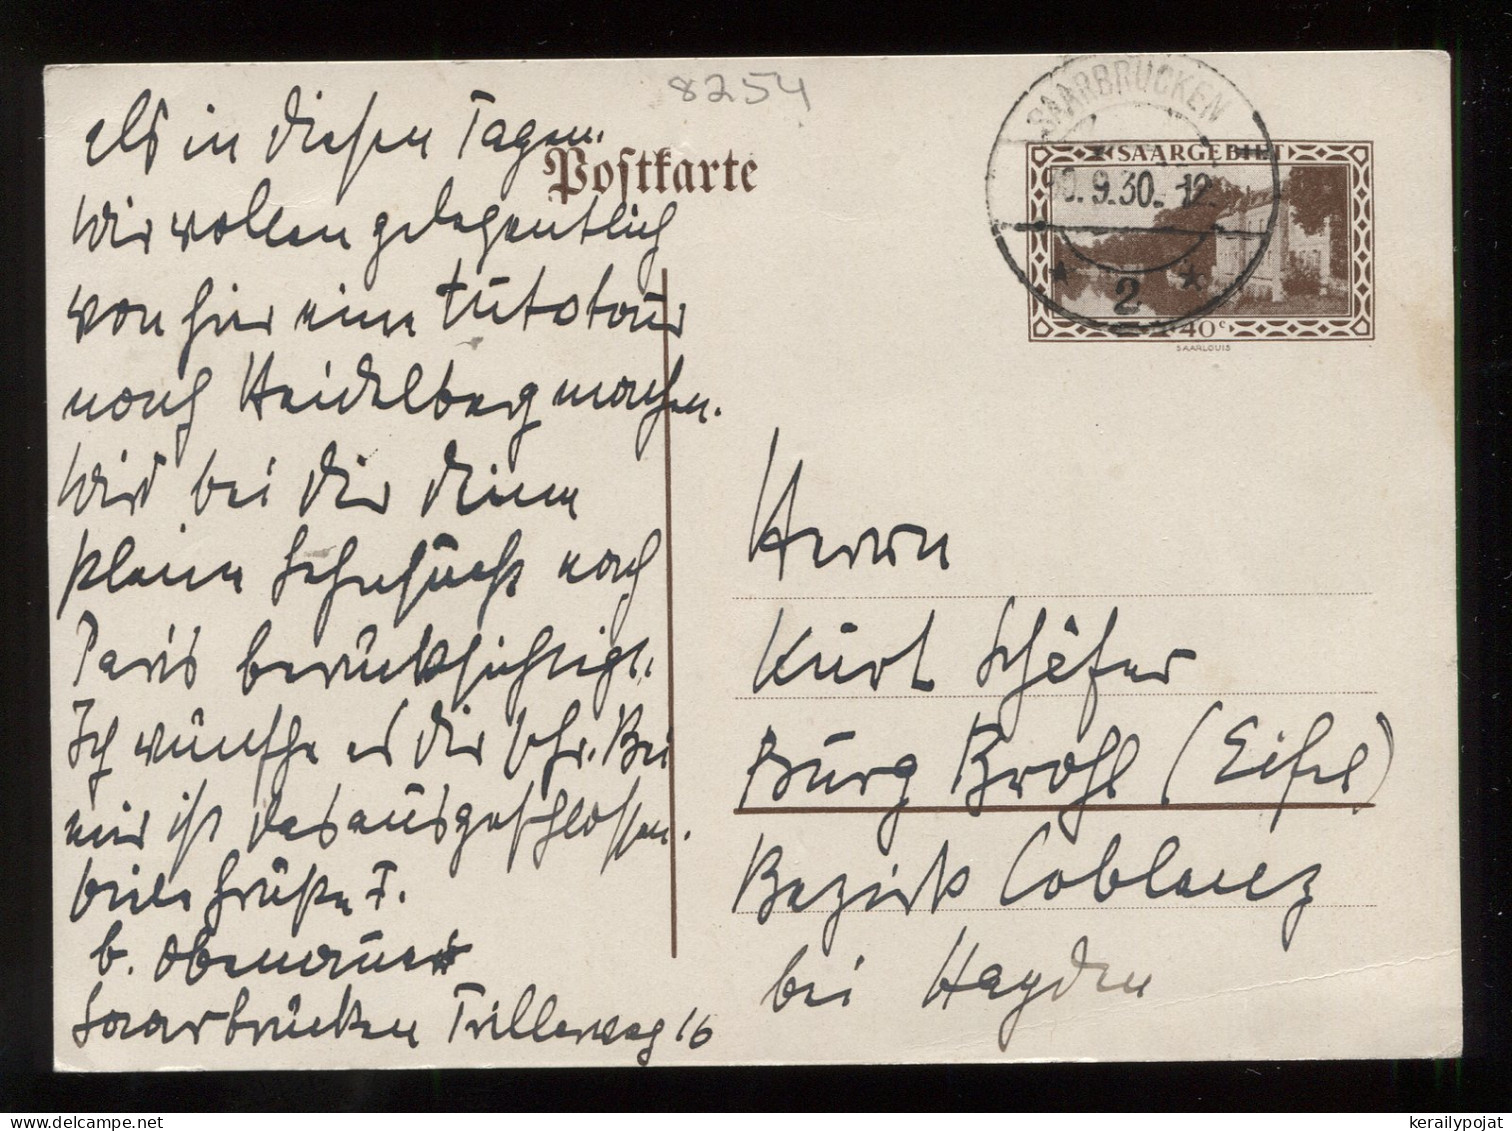 8254
als in diesen Tagen.
Wir wollen gelegentlich
von hier eine Autotour
nach Heidelberg machen.
Wird bei Dir Deine
kleine Sehnsucht nach
Paris berücksichtigt.
Ich wünsche es Dir sehr. Bei
mir ist das ausgeschlossen.
Viele Grüße F.
b. Obenauer
Saarbrücken Trillerweg 16
Postkarte
SAARBRÜCKEN
9.30. 12
* 2 *
SAARGEBIET
40 c
SAARLOUIS
Herrn
Kurt Schäfer
Burg Brohl (Eifel)
Bezirk Coblenz
bei Hayden
kerailypojat.com